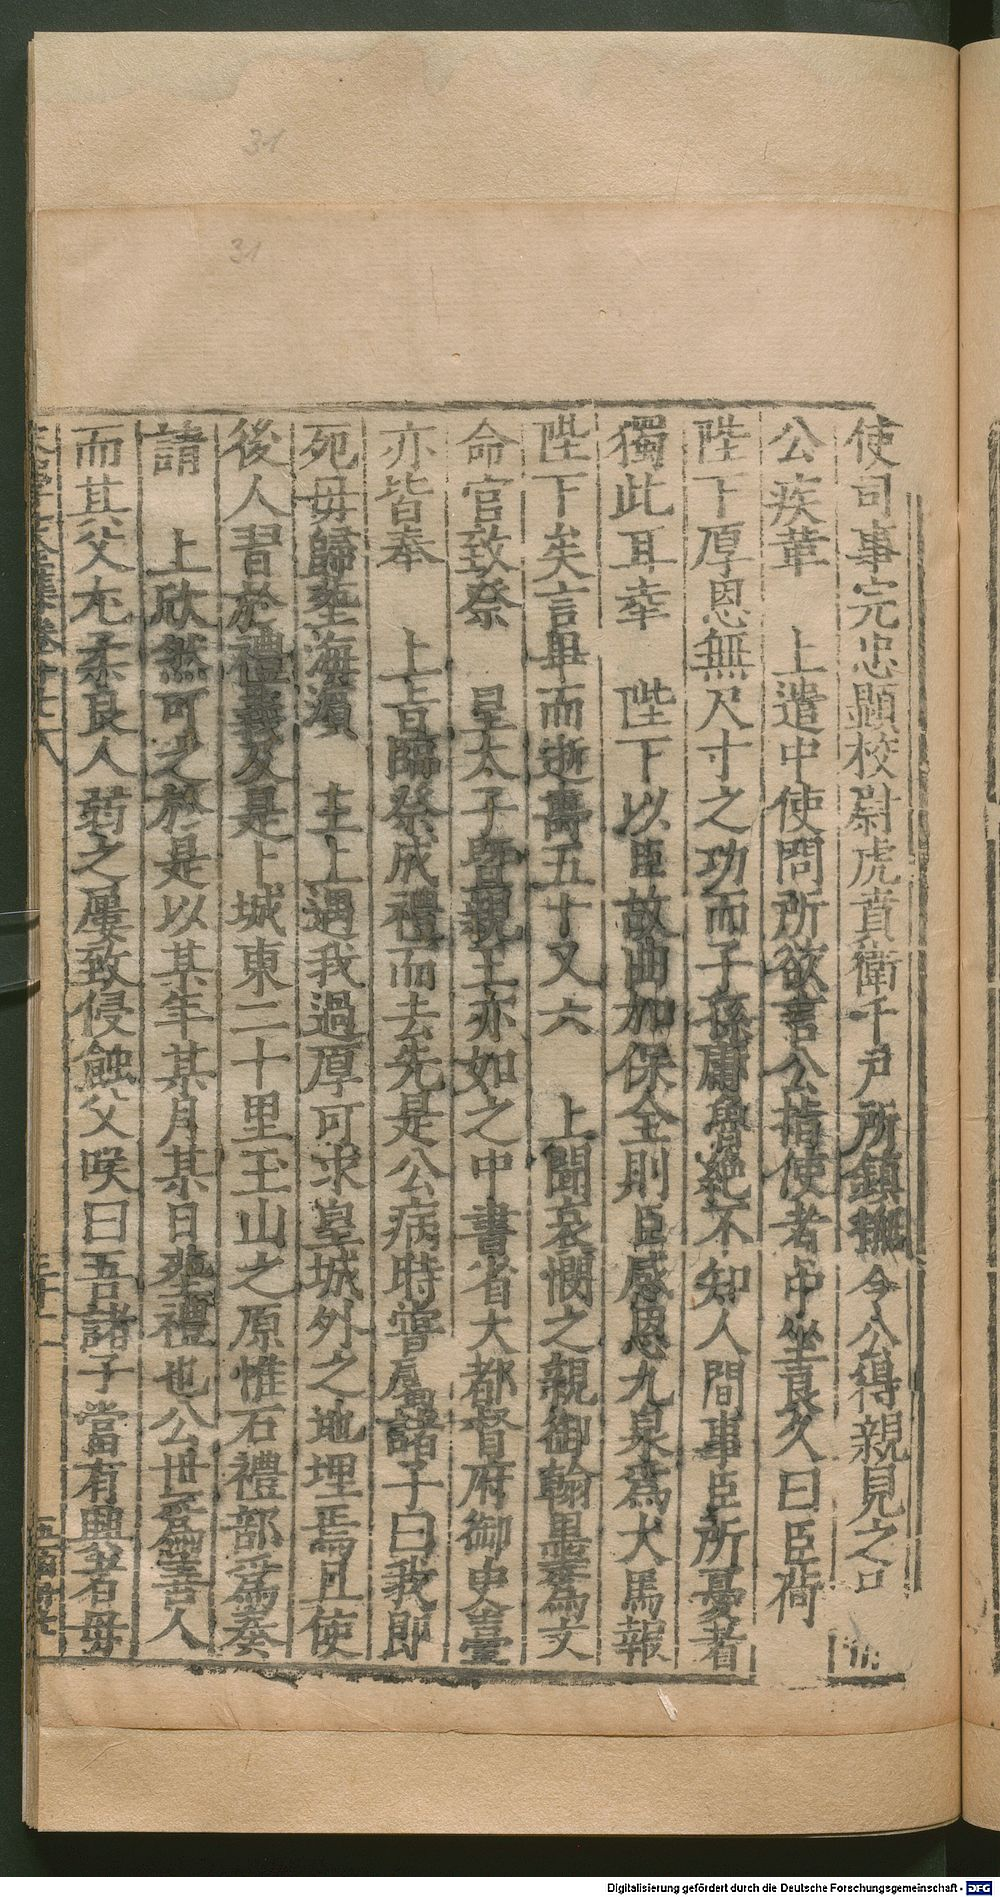 31
31
使司事完忠顯校尉虎賁衛千戶所鎮撫今公得親見之
公疾革　上遣中使問所欲言公指使者中坐良久曰臣荷
陛下厚恩無尺寸之功而子孫庸魯絕不知人間事臣所憂者
獨此耳幸　陛下以臣故曲加保全則臣感恩九泉為犬馬報
陛下矣言畢而逝壽五十又六　上聞哀憫之親御翰墨為文
命官致祭　皇太子曁親王亦如之中書省大都督府御史臺
亦皆奉　上旨臨祭成禮而去先是公病時嘗屬諸子曰我即
死毋歸塟海濵　主上遇我過厚可求皇城外之地埋焉且使
後人習於禮義及是卜城東二十里玉山之原惟石禮部爲奏
請　上欣然可之於是以某年某月某日塟禮也公世爲善人
而其父尤柔良人弱之屢致侵蝕父唉曰吾諸子當有興者毋
Digitalisierung gefördert durch die Deutsche Forschungsgemeinschaft - DFG